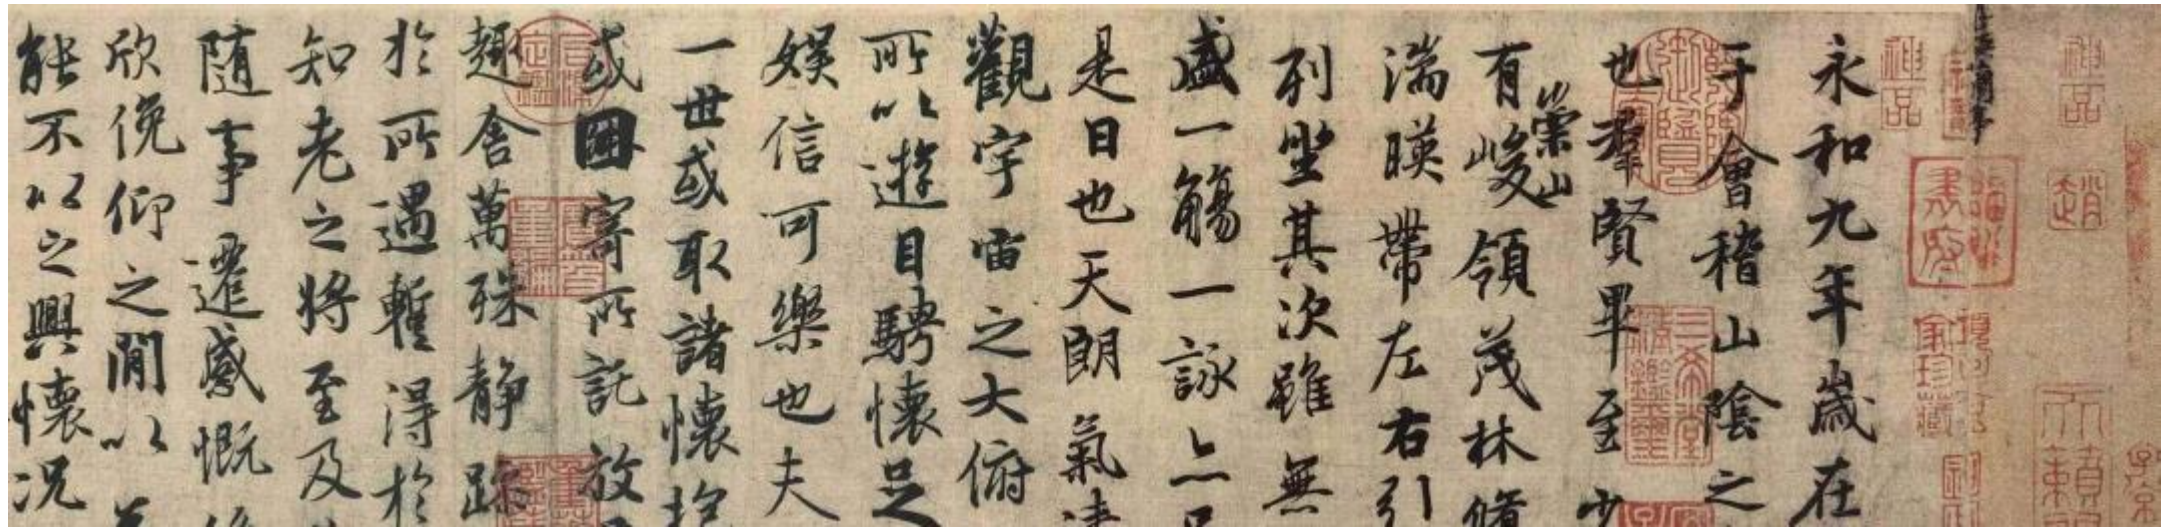 神品
趙
天籟
項子京家珍藏
神品
永和九年歲在
于會稽山陰之
三希堂精鑑璽
也羣賢畢至少
有崇山峻領茂林脩
湍暎帶左右引
列坐其次雖無
盛一觴一詠亦
是日也天朗氣清
觀宇宙之大俯
所以遊目騁懷足
娛信可樂也夫
一世或取諸懷抱
或因寄所託放
趣舍萬殊靜躁
於所遇暫得於
知老之將至及
隨事遷感慨係
欣俛仰之閒以
能不以之興懷況